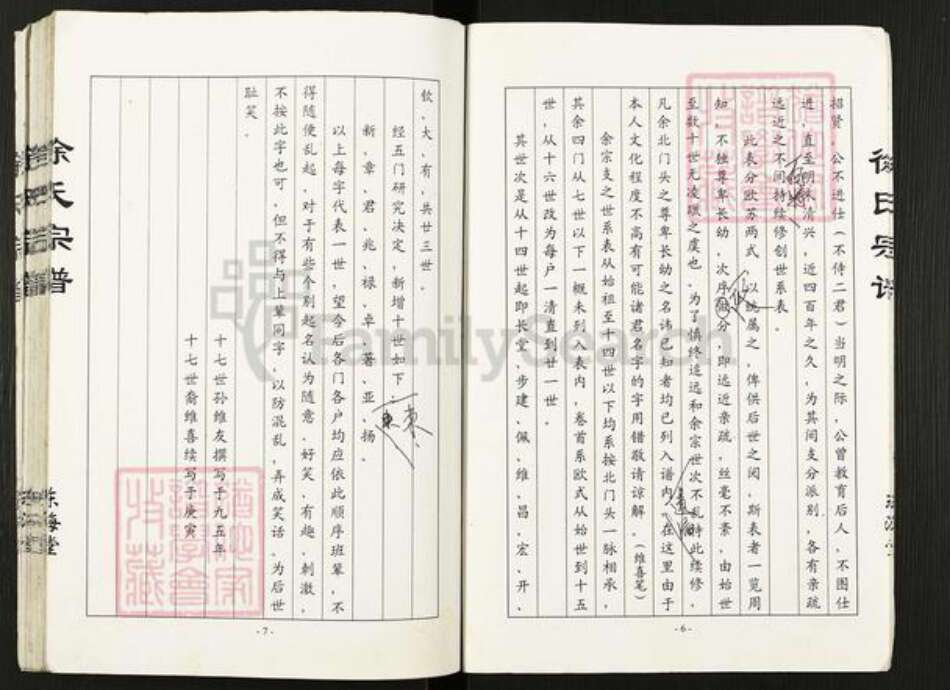 徐氏宗谱
招贤，公不进仕（不侍二君）当明之际，公曾教育后人，不图仕
进，直至明末清兴，近四百年之久，为其间支分派别，各有亲疏
远近之不间持续修创世系表．
此表分欧苏两式，以统属之，俾供后世之阅，斯表者一览周
知，不独尊卑长幼，次序做分，即远近亲疏，丝毫不紊，由始世
至数十世无凌躐之虞也．为了慎终追远和余宗世次不乱特此续修，
凡余北门头之尊卑长幼之名讳已知者均已列入谱内，在这里由于
本人文化程度不高有可能诸君名字的字用错敬请谅解．（维喜笔）
余宗支之世系表从始祖至十四世以下均系按北门头一脉相承，
其余四门从七世以下一概未列入表内，卷首系欧式从始世到十五
世，从十六世改为每户一清直到廿一世．
其世次是从十四世起即长堂、步建、佩、维、昌、宏、开、
-6-
钦、大、有，共廿三世．
经五门研究决定，新增十世如下
新、章、君、兆、禄、卓、著、亚、扬．
东
以上每字代表一世，望今后各门各户均应依此顺序班辈，不
得随便乱起，对于有些个别起名认为随意，好笑，有趣，刺激，
不按此字也可，但不得与上辈同字，以防混乱，弄成笑话，为后世
耻笑．
十七世孙维友撰写于九五年
十七世裔维喜续写于庚寅
-7-
东海堂
FamilySearch